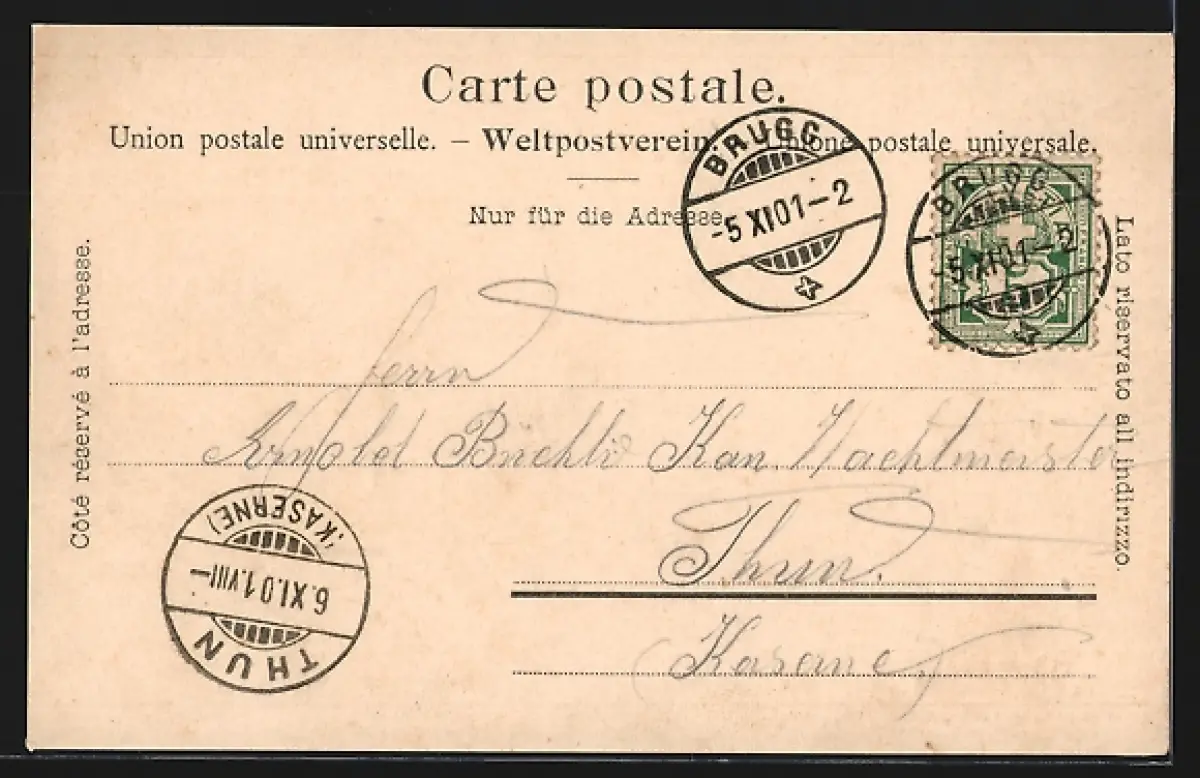 Carte postale.
Union postale universelle. — Weltpostverein. Unione postale universale.
Nur für die Adresse.
BRUGG
-5 XI 01-2
BRUGG
-5 XI 01-2
Côté réservé à l'adresse.
Lato riservato all indirizzo.
Herrn
Arnold Büchli Kan. Wachtmeister
Thun.
Kasane
(KASERNE)
6.XI.01.VIII-
THUN